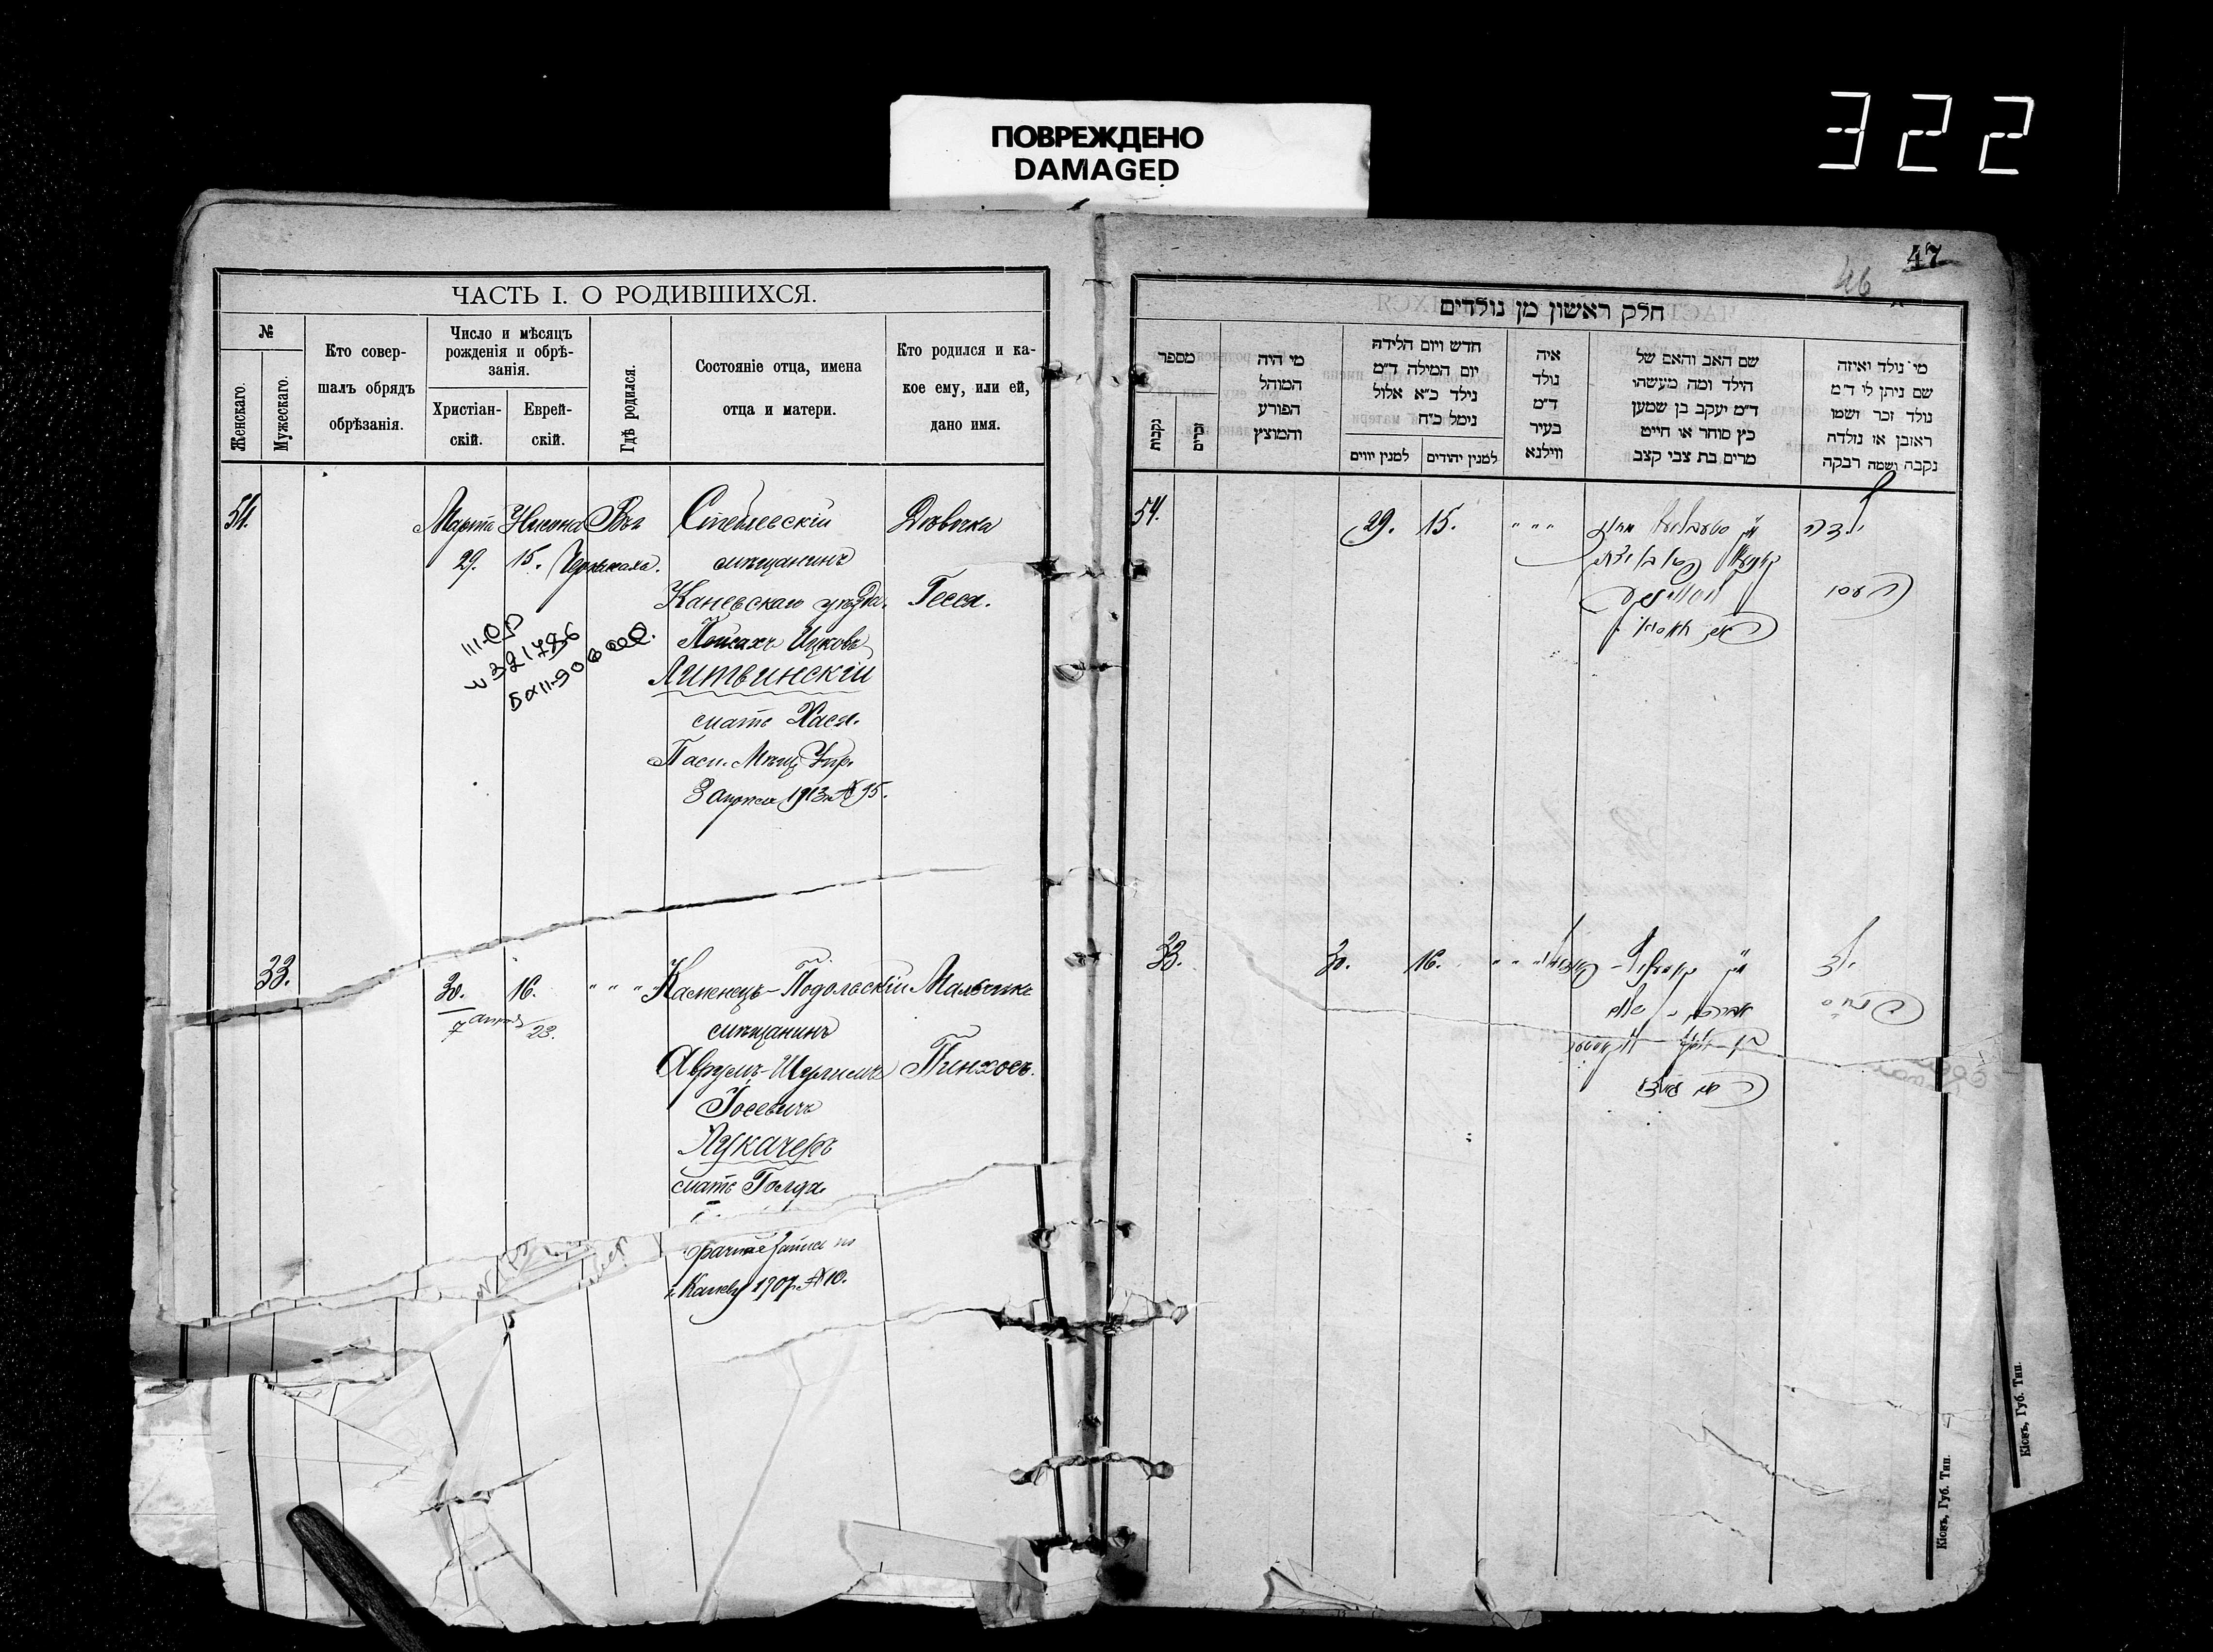 ПОВРЕЖДЕНО
DAMAGED
322
ЧАСТЬ I. О РОДИВШИХСЯ.
№
Женскаго.
Мужескаго.
Кто совер-
шалъ обрядъ
обрѣзанія.
Число и мѣсяцъ
рожденія и обрѣ-
занія.
Христіан-
скій.
Еврей-
скій.
Гдѣ родился.
Состояніе отца, имена
отца и матери.
Кто родился и ка-
кое ему, или ей,
дано имя.
54.
Мартъ
29.
Нисана
15.
Въ
Черкасахъ.
Стеблевскій
мѣщанинъ
Каневскаго уѣзда.
Пейсахъ Ицковъ
Литвинскій
мать Хася.
Пасп. Мѣщ. Упр.
8 апрѣля 1913 г. № 95.
Дѣвочка
Гесся.
III-СР
№ 321786
33.
30.
7 апрѣля
16.
23.
" " "
Каменецъ-Подольскій
мѣщанинъ
Аврумъ-Шулимъ
Іосевичъ
Лукачеръ
мать Голда
брачная запись по
г. Каневу 1907 г. № 10.
Мальчикъ
Пинхосъ.
47
46
חלק ראשון מן נולדים
מספר
נקבות
זכרים
מי היה
המוהל
הפורע
והמוצץ
חדש ויום הלידה
יום המילה ד"מ
נילד כ"א אלול
נימל כ"ח
למנין יווים
למנין יהודים
איה
נולד
ד"מ
בעיר
ווילנא
שם האב והאם של
הילד ומה מעשהו
ד"מ יעקב בן שמען
כץ סוחר או חייט
מרים בת צבי קצב
מי נולד ואיזה
שם ניתן לו ד"מ
נולד זכר ושמו
ראובן או נולדה
נקבה ושמה רבקה
54.
29.
15.
" " "
ילדה
העסי
33.
30.
16.
" "
ילד
פנחס
Кіевъ, Губ. Тип.
Кіевъ, Губ. Тип.